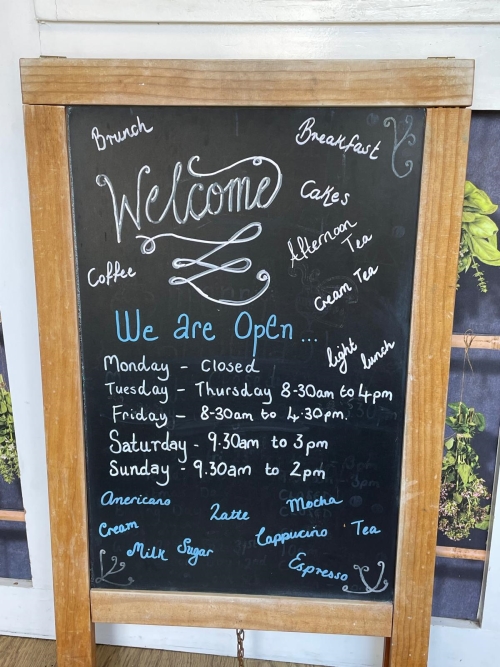 Brunch
Breakfast
Welcome
Cakes
Afternoon
Tea
Coffee
Cream Tea
We are Open...
light lunch
Monday - Closed
Tuesday - Thursday 8-30am to 4pm
Friday - 8-30am to 4.30pm.
Saturday - 9.30am to 3pm
Sunday - 9.30am to 2pm
Americano
Latte
Mocha
Cream
Cappucino
Tea
Milk
Sugar
Espresso